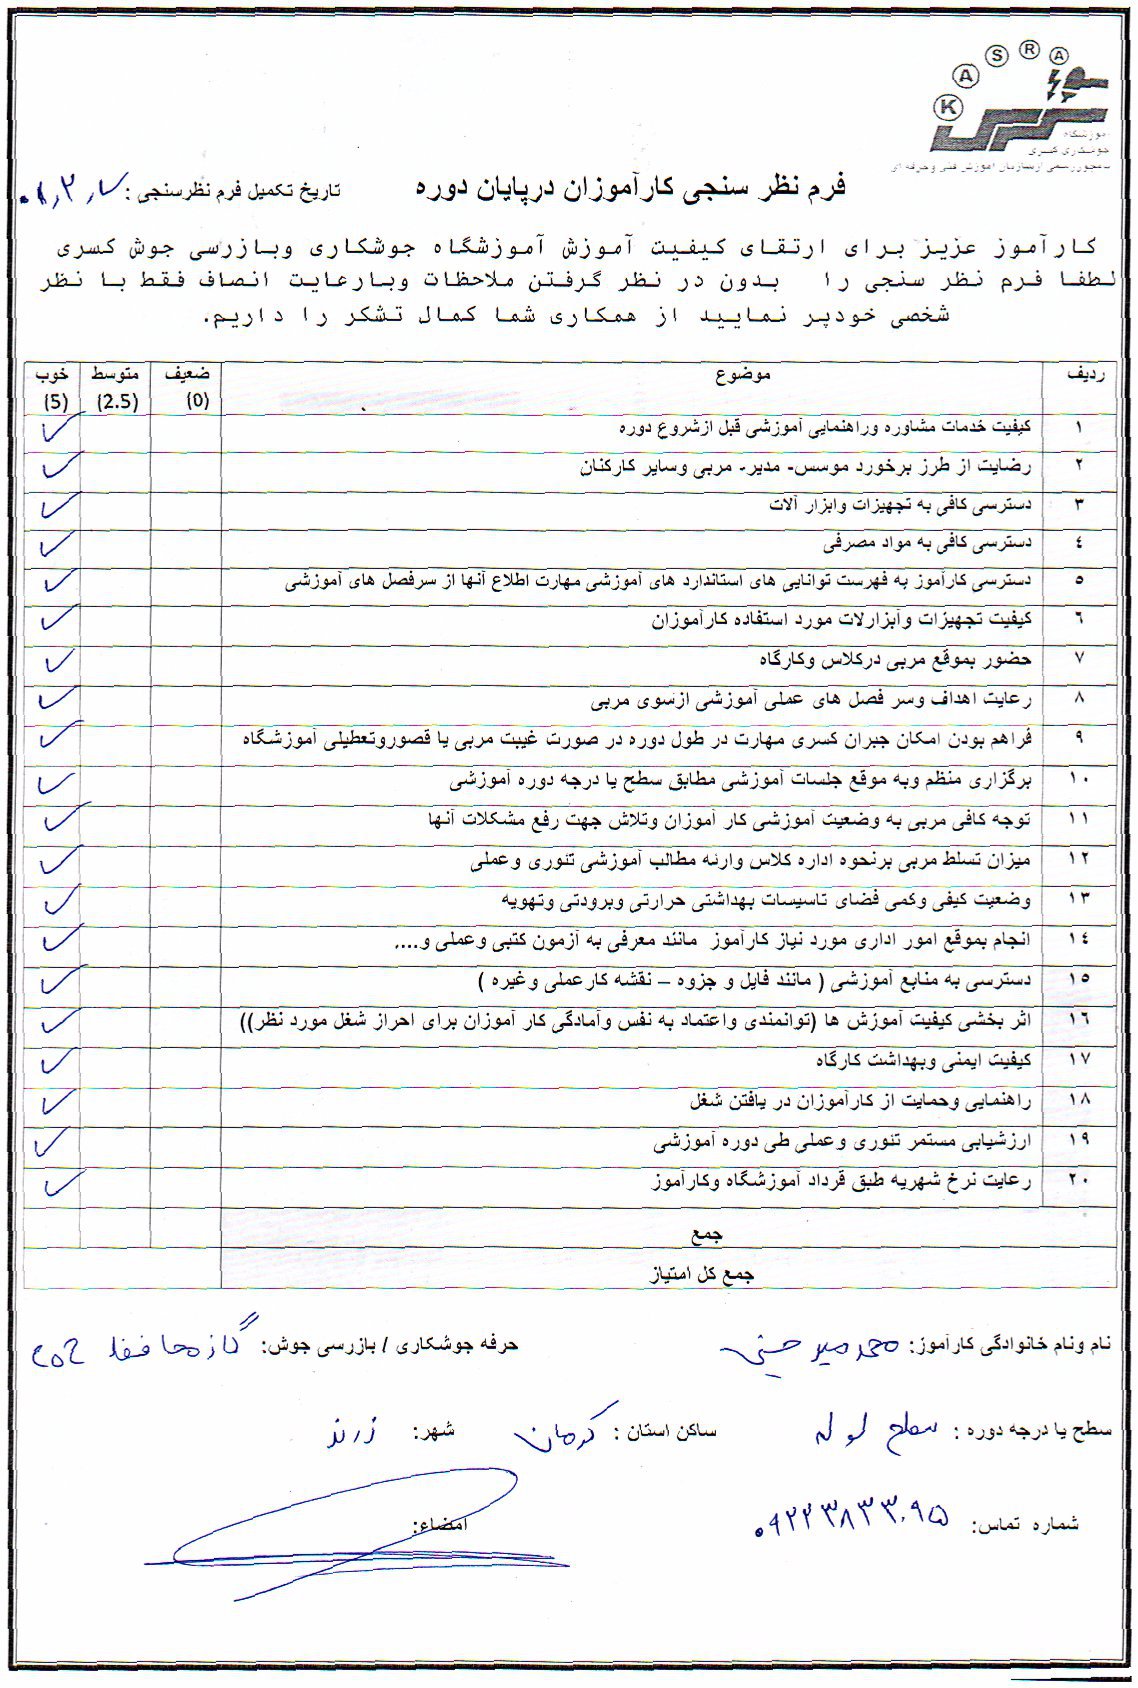 KASRA
آموزشگاه
جوشکاری کسری
فرم نظر سنجی کارآموزان درپایان دوره
تاریخ تکمیل فرم نظرسنجی :
کارآموز عزیز برای ارتقای کیفیت آموزش آموزشگاه جوشکاری وبازرسی جوش کسری
لطفا فرم نظر سنجی را بدون در نظر گرفتن ملاحظات وبارعایت انصاف فقط با نظر
شخصی خودپر نمایید از همکاری شما کمال تشکر را داریم.
ردیف موضوع ضعیف (0) متوسط (2.5) خوب (5)
١ کیفیت خدمات مشاوره وراهنمایی آموزشی قبل ازشروع دوره ✓
٢ رضایت از طرز برخورد موسس- مدیر- مربی وسایر کارکنان ✓
٣ دسترسی کافی به تجهیزات وابزار آلات ✓
٤ دسترسی کافی به مواد مصرفی ✓
٥ دسترسی کارآموز به فهرست توانایی های استاندارد های آموزشی مهارت اطلاع آنها از سرفصل های آموزشی ✓
٦ کیفیت تجهیزات وآبزارلات مورد استفاده کارآموزان ✓
٧ حضور بموقع مربی درکلاس وکارگاه ✓
٨ رعایت اهداف وسر فصل های عملی آموزشی ازسوی مربی ✓
٩ فراهم بودن امکان جبران کسری مهارت در طول دوره در صورت غیبت مربی یا قصوروتعطیلی آموزشگاه ✓
١٠ برگزاری منظم وبه موقع جلسات آموزشی مطابق سطح یا درجه دوره آموزشی ✓
١١ توجه کافی مربی به وضعیت آموزشی کار آموزان وتلاش جهت رفع مشکلات آنها ✓
١٢ میزان تسلط مربی برنحوه اداره کلاس وارئه مطالب آموزشی تئوری وعملی ✓
١٣ وضعیت کیفی وکمی فضای تاسیسات بهداشتی حرارتی وبرودتی وتهویه ✓
١٤ انجام بموقع امور اداری مورد نیاز کارآموز مانند معرفی به آزمون کتبی وعملی و.... ✓
١٥ دسترسی به منابع آموزشی ( مانند فایل و جزوه – نقشه کارعملی وغیره ) ✓
١٦ اثر بخشی کیفیت آموزش ها (توانمندی واعتماد به نفس وآمادگی کار آموزان برای احراز شغل مورد نظر)) ✓
١٧ کیفیت ایمنی وبهداشت کارگاه ✓
١٨ راهنمایی وحمایت از کارآموزان در یافتن شغل ✓
١٩ ارزشیابی مستمر تئوری وعملی طی دوره آموزشی ✓
٢٠ رعایت نرخ شهریه طبق قرداد آموزشگاه وکارآموز ✓
جمع
جمع کل امتیاز
نام ونام خانوادگی کارآموز: محمد میرحسینی حرفه جوشکاری / بازرسی جوش: گاز محافظ co2
سطح یا درجه دوره : سطح لوله ساکن استان : کرمان شهر: زرند
شماره تماس: ۰۹۲۲۳۸۳۳۰۹۵ امضاء: